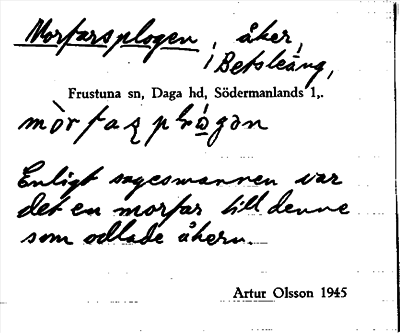 Morfarsplogen, åker,
i Betsleäng,
Frustuna sn, Daga hd, Södermanlands l,.
Enligt sagesmannen var
det en morfar till denne
som odlade åkern.
Artur Olsson 1945